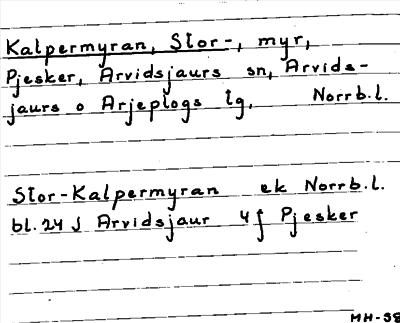 Kalpermyran, Stor-, myr,
Pjesker, Arvidsjaurs sn, Arvids-
jaurs o Arjeplogs tg, Norrb.l.
Stor-Kalpermyran ek Norrb.l.
bl. 24 J Arvidsjaur 4 f Pjesker
MH-58